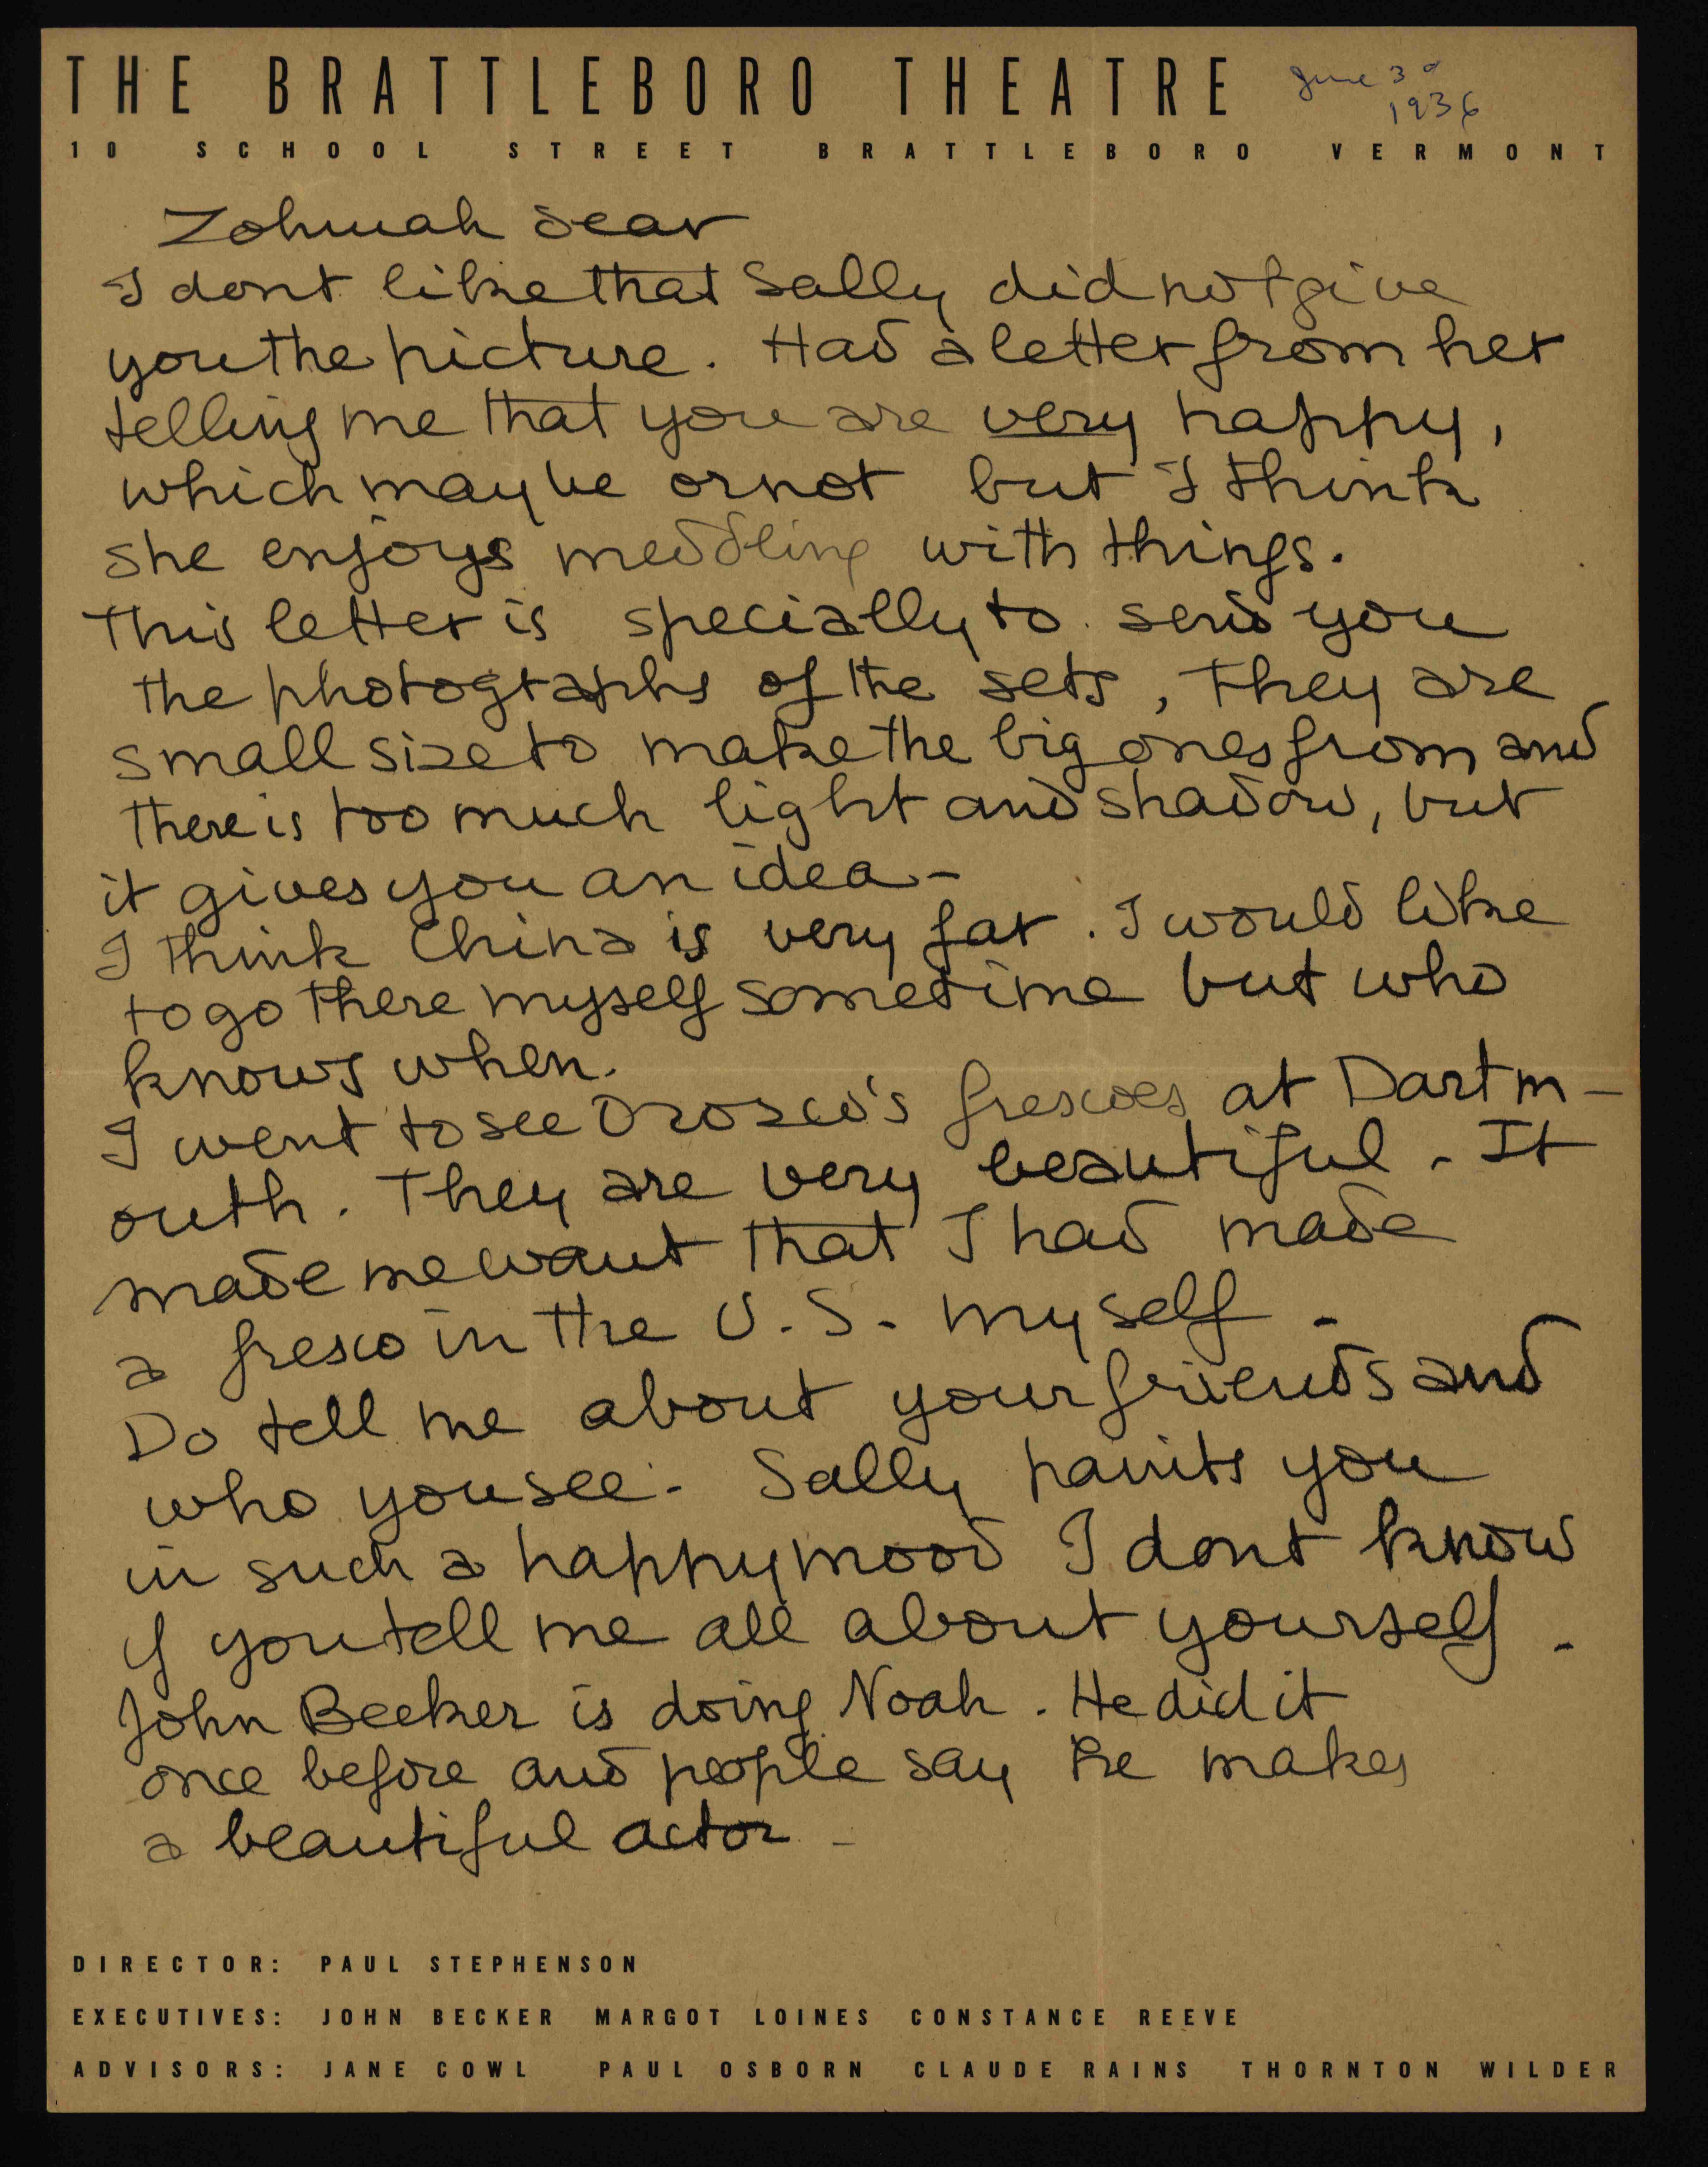 THE BRATTLEBORO THEATRE
June 30
1936
10 SCHOOL STREET BRATTLEBORO VERMONT
Zohmah dear
I dont like that Sally did not give
you the picture. Had a letter from her
telling me that you are very happy,
which may be or not but I think
she enjoys meddling with things.
This letter is specially to send you
the photographs of the sets, they are
small size to make the big ones from and
there is too much light and shadow, but
it gives you an idea-
I think China is very far. I would like
to go there myself sometime but who
knows when.
I went to see Orosco's frescoes at Dartm-
outh. They are very beautiful. It
made me want that I had made
a fresco in the U.S. myself.
Do tell me about your friends and
who you see. Sally paints you
in such a happy mood I dont know
if you tell me all about yourself.
John Becker is doing Noah. He did it
once before and people say he makes
a beautiful actor -
DIRECTOR: PAUL STEPHENSON
EXECUTIVES: JOHN BECKER MARGOT LOINES CONSTANCE REEVE
ADVISORS: JANE COWL PAUL OSBORN CLAUDE RAINS THORNTON WILDER